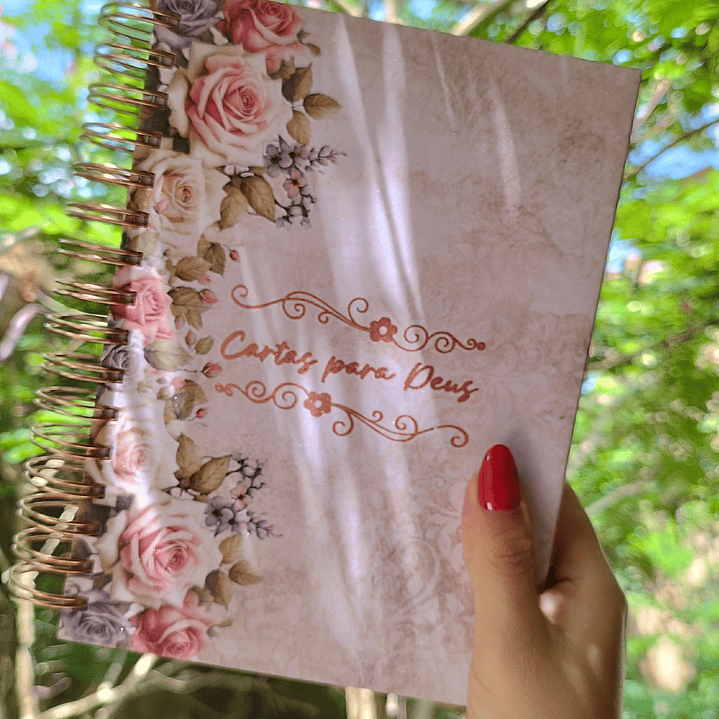 Cartas para Deus